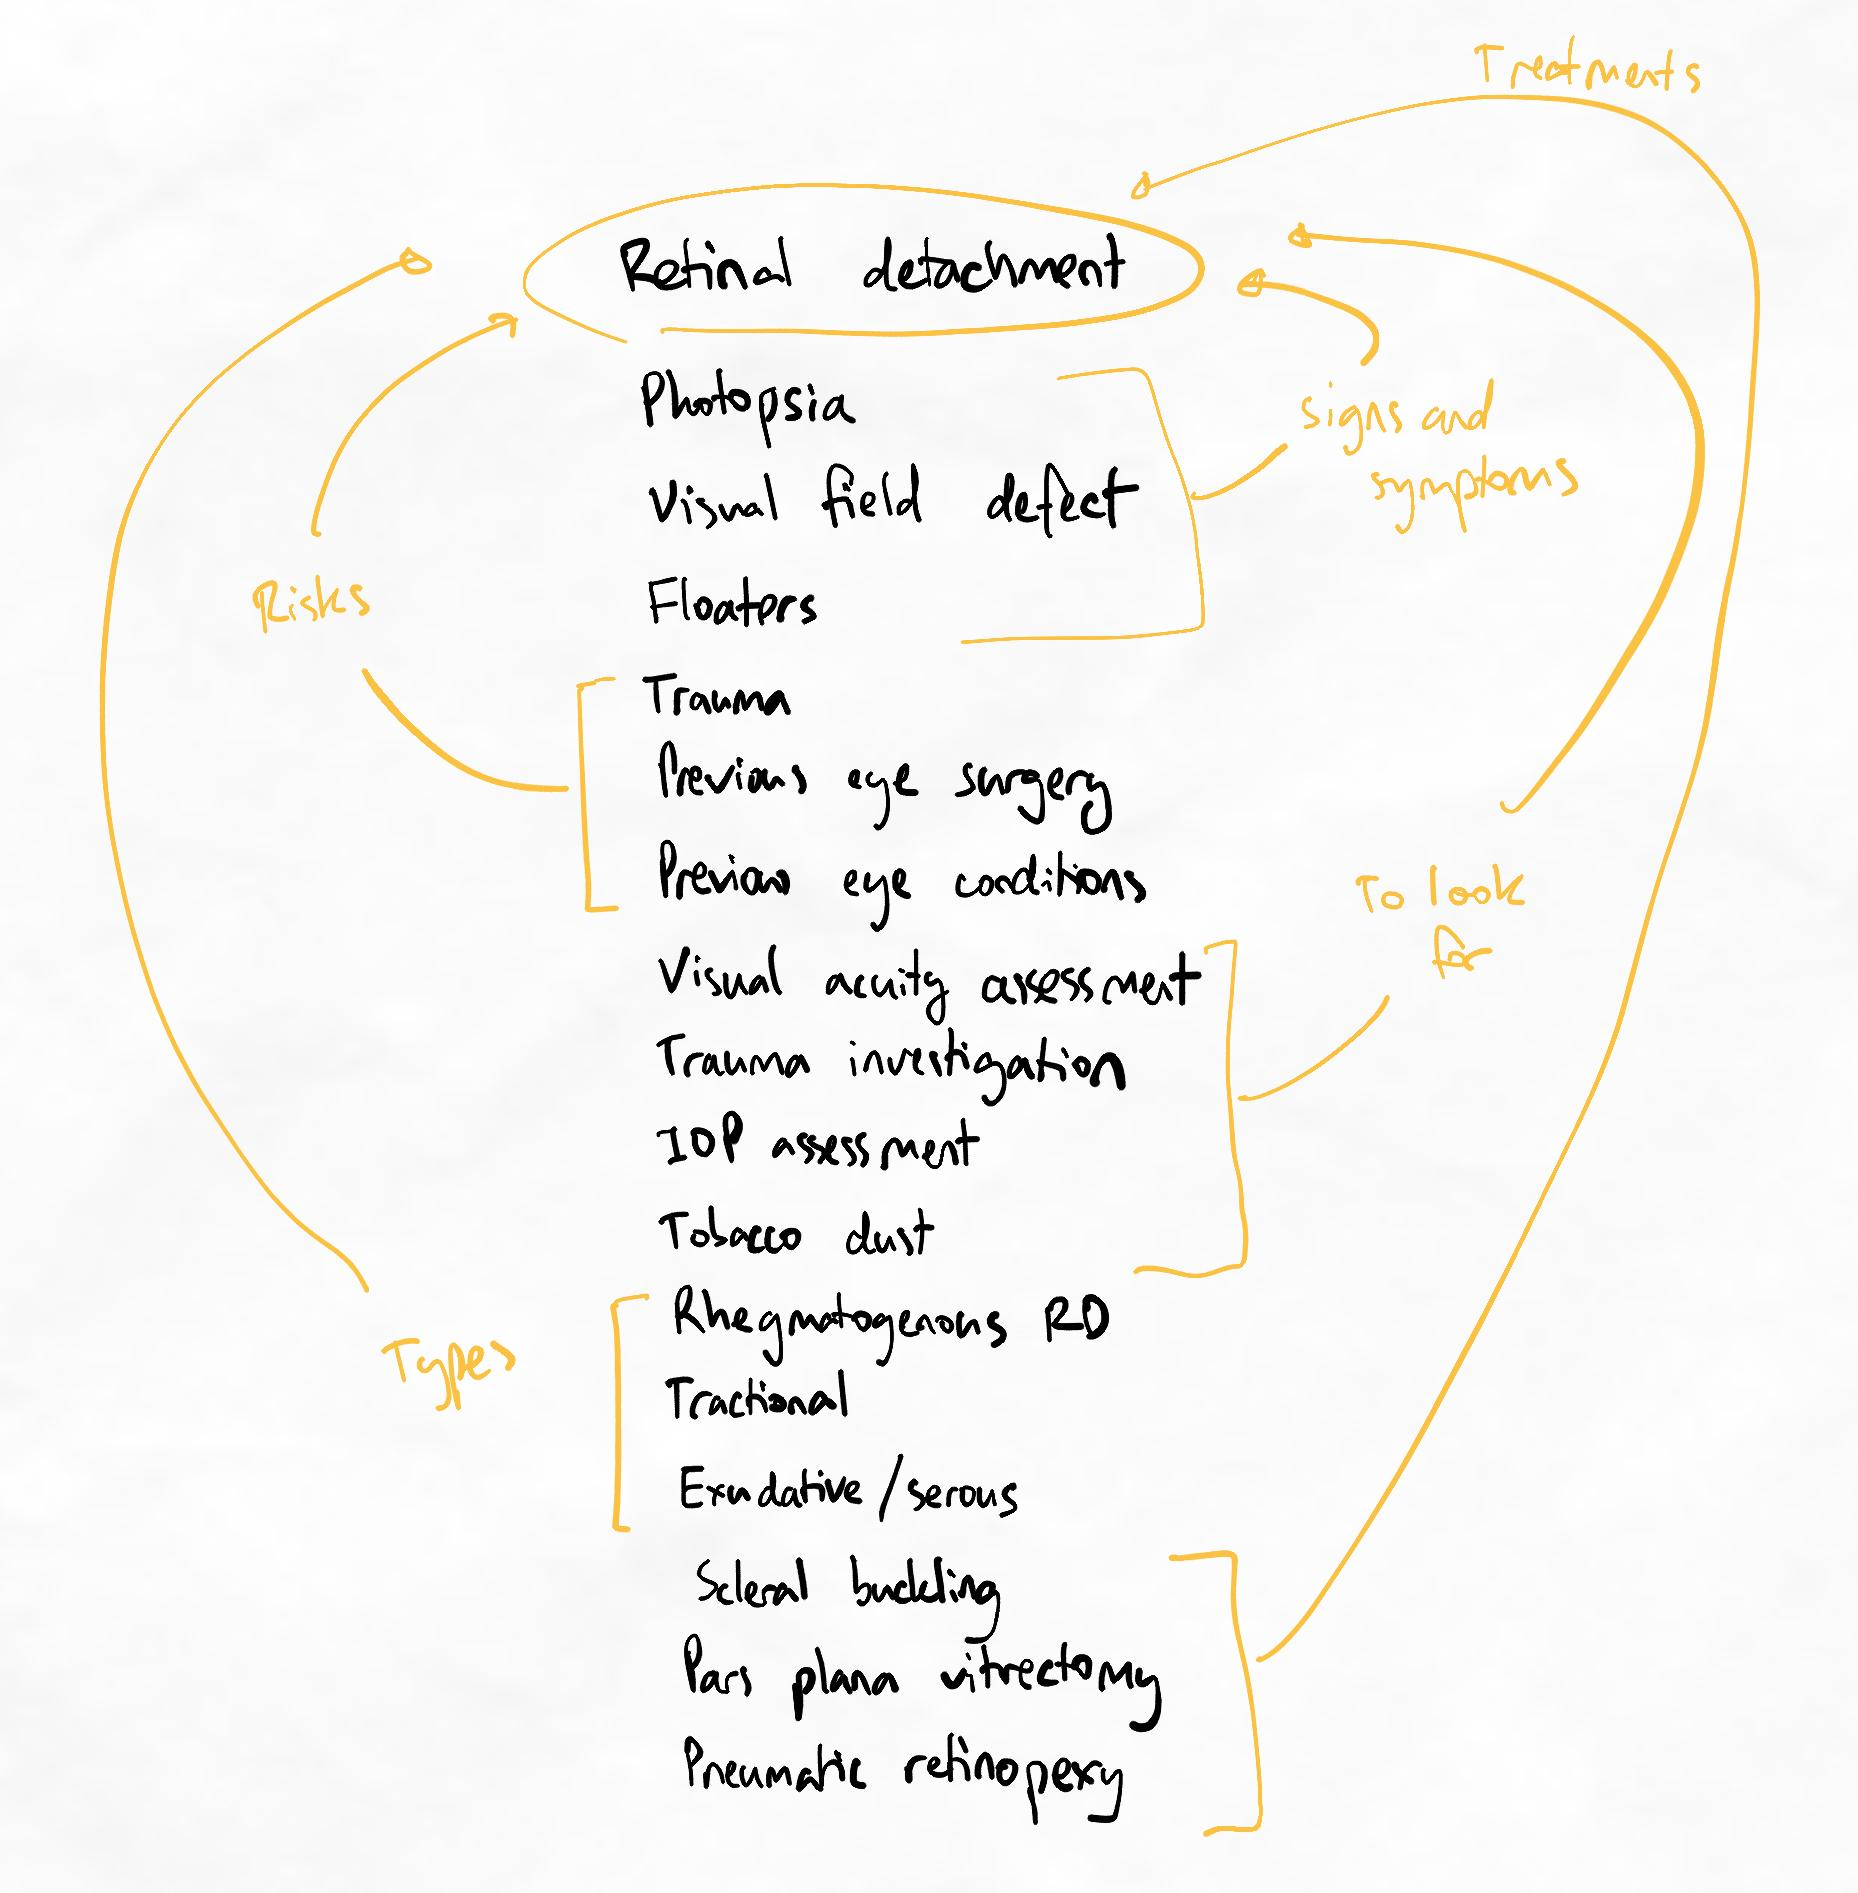 Treatments
Retinal detachment
Photopsia
signs and
symptoms
Visual field defect
Floaters
Risks
Trauma
Previous eye surgery
Previous eye conditions
To look
for
Visual acuity assessment
Trauma investigation
IOP assessment
Tobacco dust
Rhegmatogenous RD
Types
Tractional
Exudative/serous
Scleral buckling
Pars plana vitrectomy
Pneumatic retinopexy